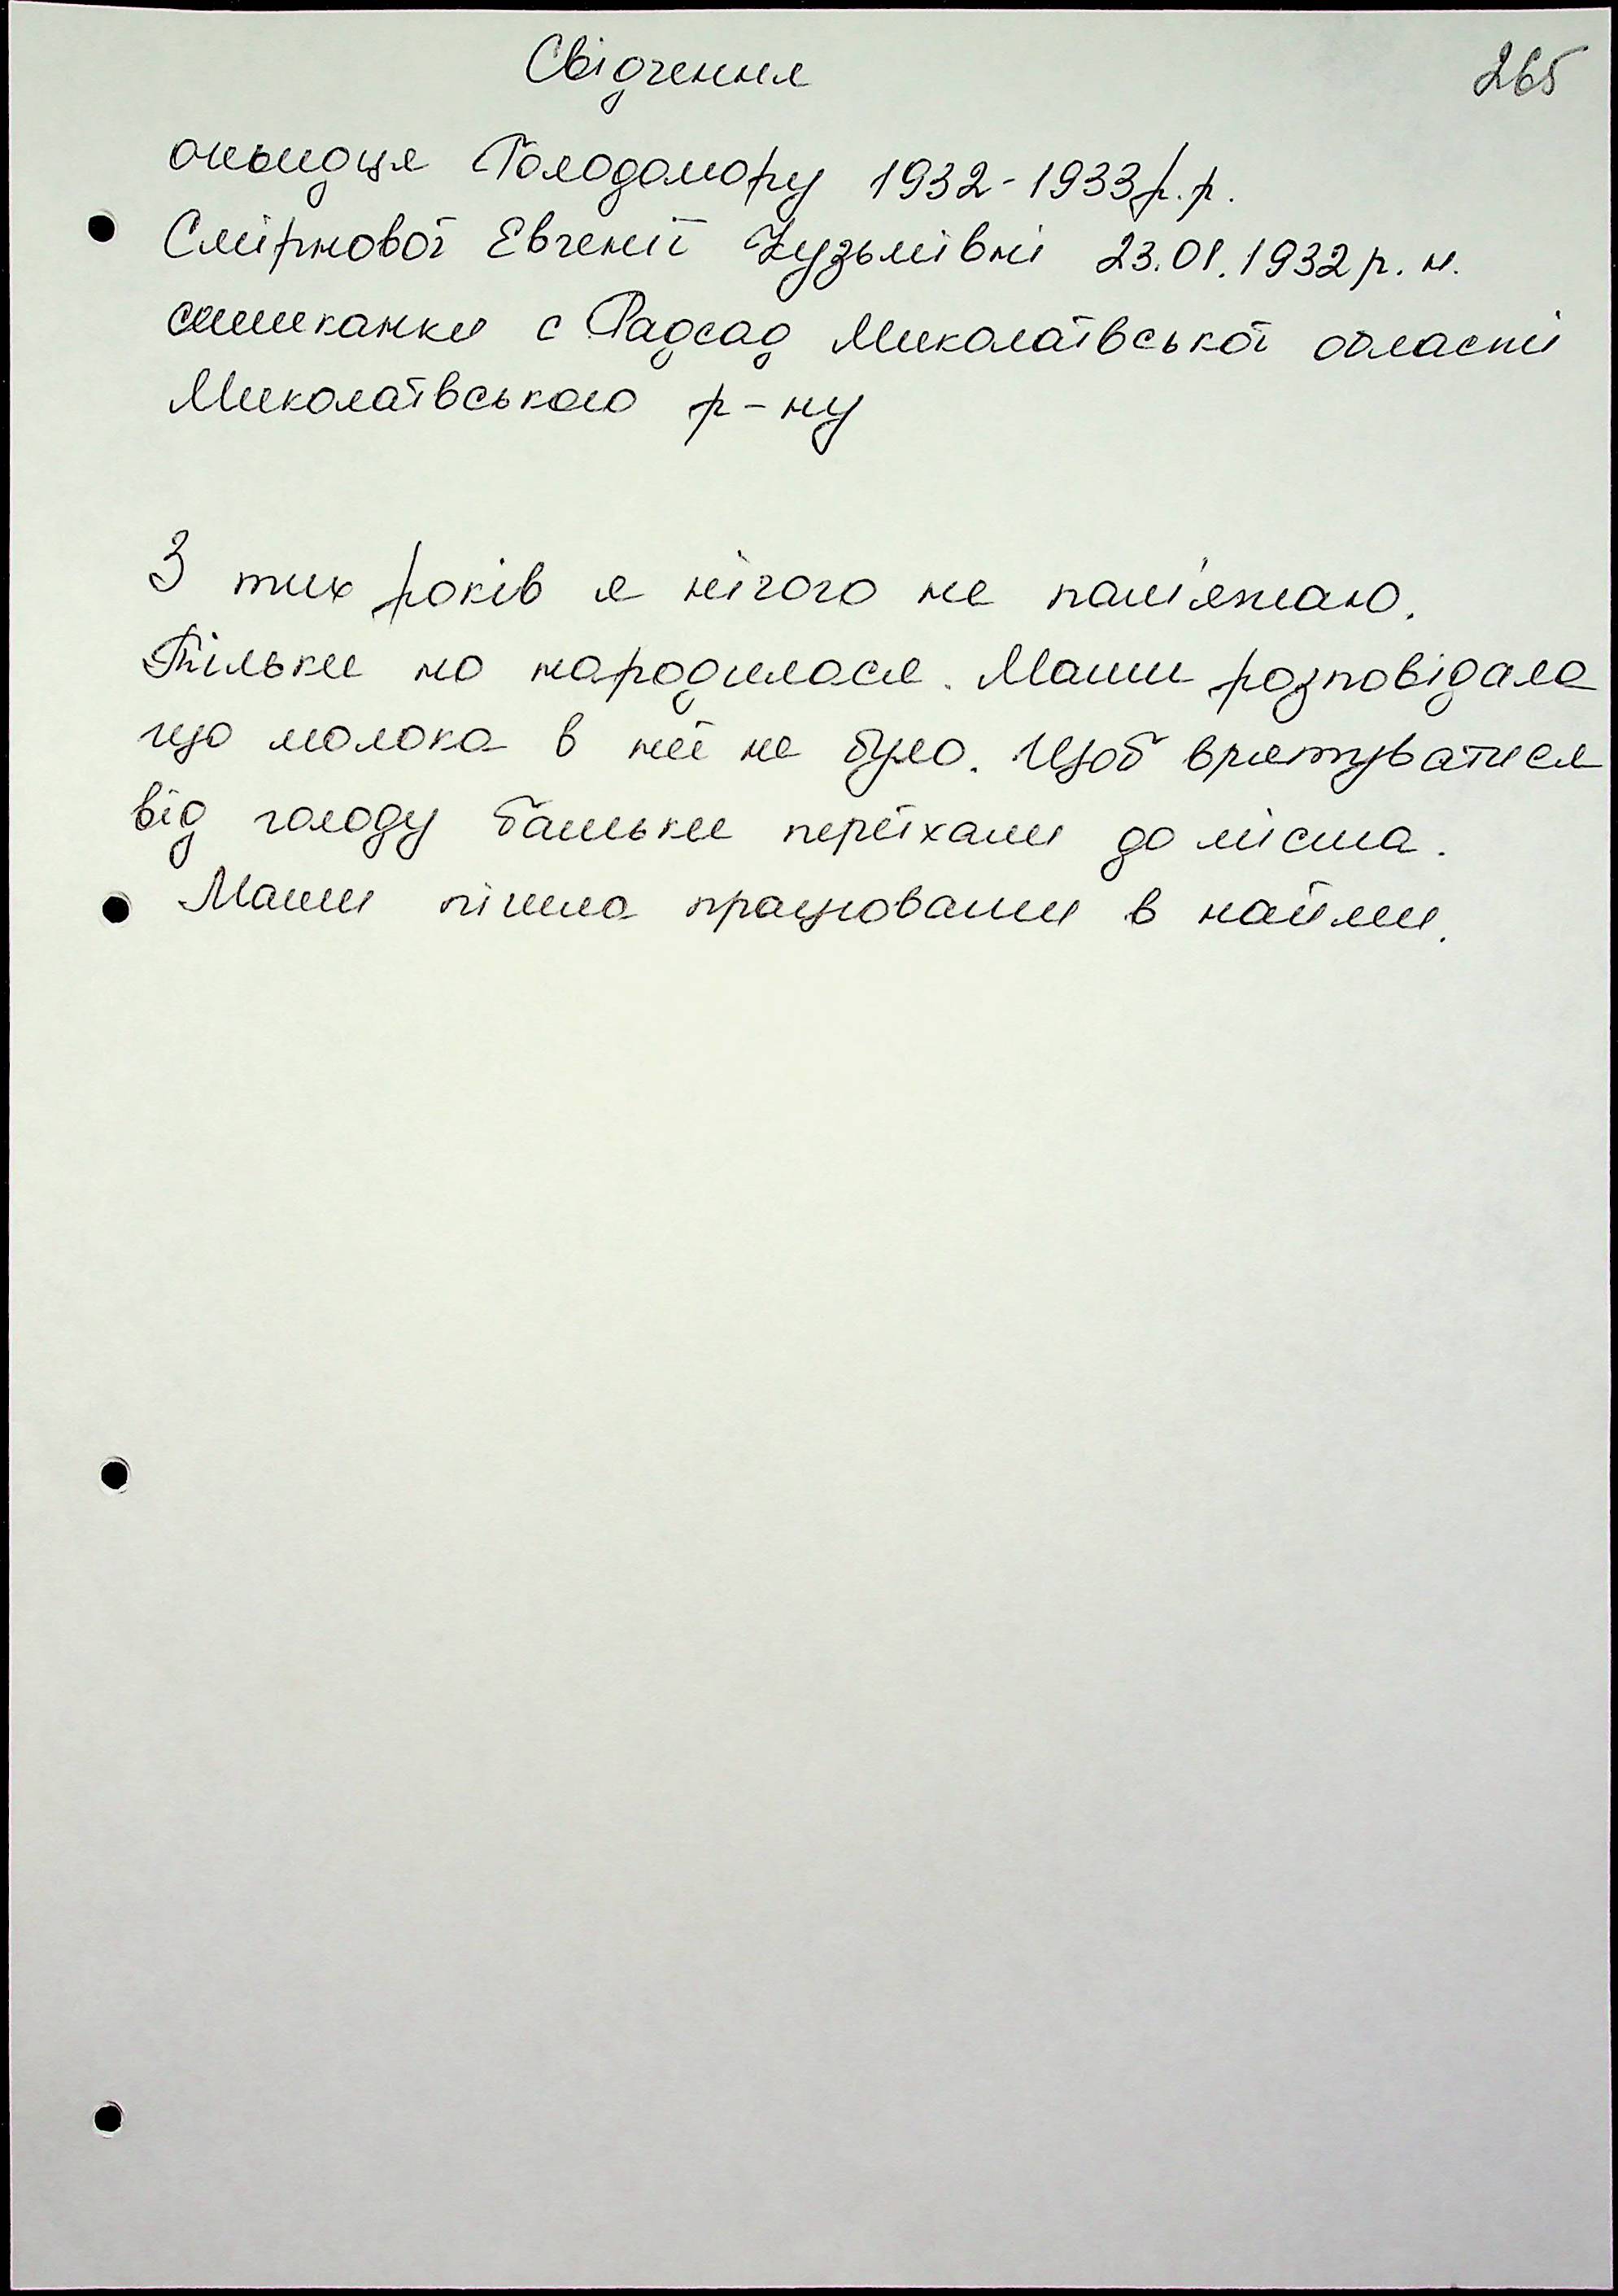 Свідчення
265
очевидця Голодомору 1932-1933 р.р.
Смірнової Евгенії Кузьмівні 23.01.1932 р. н.
с Радсад Миколаївської області
Миколаївського р-ну
З тих років я нічого не пам'ятаю.
Тільки но народилася. Мати розповідала
що молока в неї не було. Щоб врятуватися
від голоду батьки переїхали до міста.
Мати пішла працювати в найми.